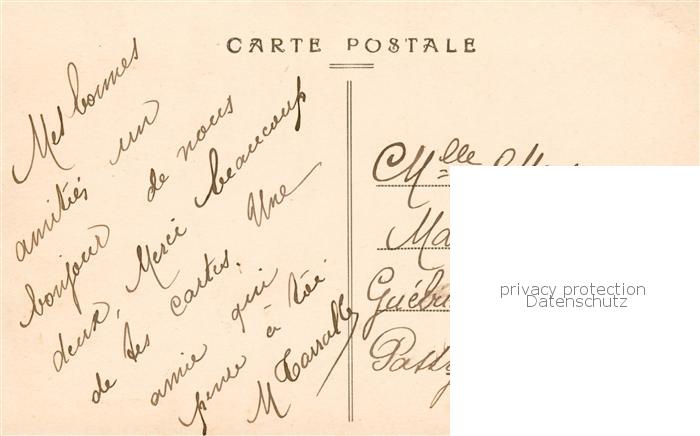 CARTE POSTALE
Mes bonnes
amitiés un
bonjour de nous
deux, Merci beaucoup
de tes cartes. Une
amie qui
pense à toi
M
Mlle
privacy protection
Datenschutz